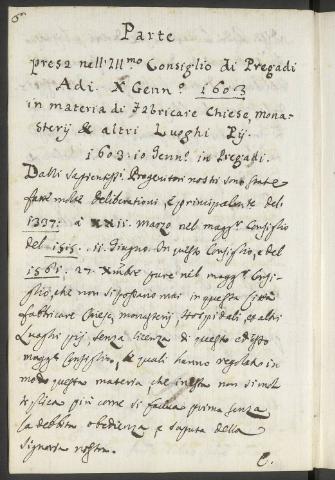 Parte
presa nell'Ill.mo Consiglio di Pregadi
Adi. X Genn.o 1603
in materia di Fabricare Chiese, mona-
sterij & altri Luoghi Pij.
1603: 10 Genn.o in Pregadi.
Dalli Sapientiss.i Progenitori nostri sono state
fatte molte deliberationi, e principalmente del
1337. a XXII. marzo nel magg.r Consiglio
del 1515. 11. Giugno. In questo Consiglio, e del
1561. 27. Xmbre pure nel magg.r Consi-
glio, che non si possano mai in questa Città
fabbricare Chiese, monasterij, Hospitali, et altri
Luoghi pij, senza licenza di questo et detto
magg.r Consiglio, le quali hanno regolato in
modo questa materia che in essa non si molt
tiplica più come si faceva prima senza
la debbita obedienza, e saputa della
Signoria nostra.
E.